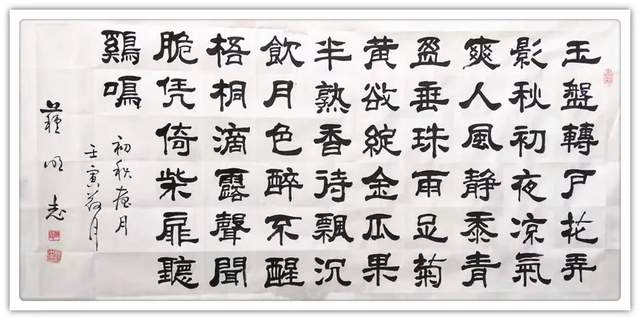 玉盤轉戶花弄
影秋初夜涼氣
爽人風静黍青
盈垂珠雨足菊
黄欲綻金瓜果
半熟香待飄沉
飲月色醉不醒
梧桐滴露聲聞
脆凭倚柴扉聽
鷄鳴
初秋夜月
壬寅荷月
明志